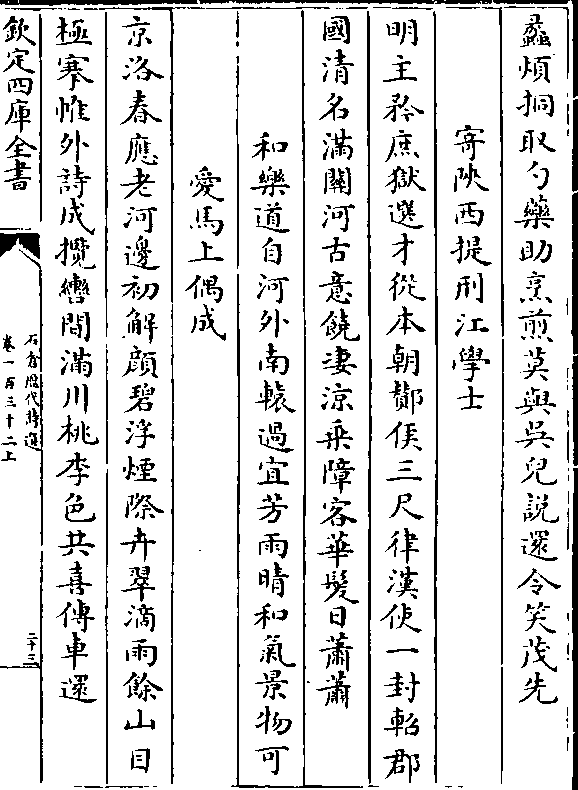 蠡煩挏取勺藥助烹煎莫與吳兒說還令笑茂先
寄陜西提刑江學士
明主矜庶獄選才從本朝鄼侯三尺律漢使一封軺郡
國清名滿關河古意饒凄涼乘障客華髮日蕭蕭
和樂道自河外南轅過宜芳雨晴和氣景物可
愛馬上偶成
京洛春應老河邊初解顔碧浮煙際卉翠滴雨餘山目
極搴帷外詩成攬轡間滿川桃李色共喜傳車還
欽定四庫全書
石倉歷代詩選
卷一百三十二上
二十三